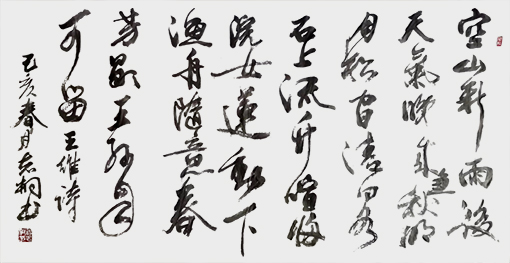 空山新雨後
天氣晚来秋明
月松間清泉
石上流竹喧歸
浣女蓮動下
漁舟隨意春
芳歇王孫自
可留 王維詩
己亥春月志桐書